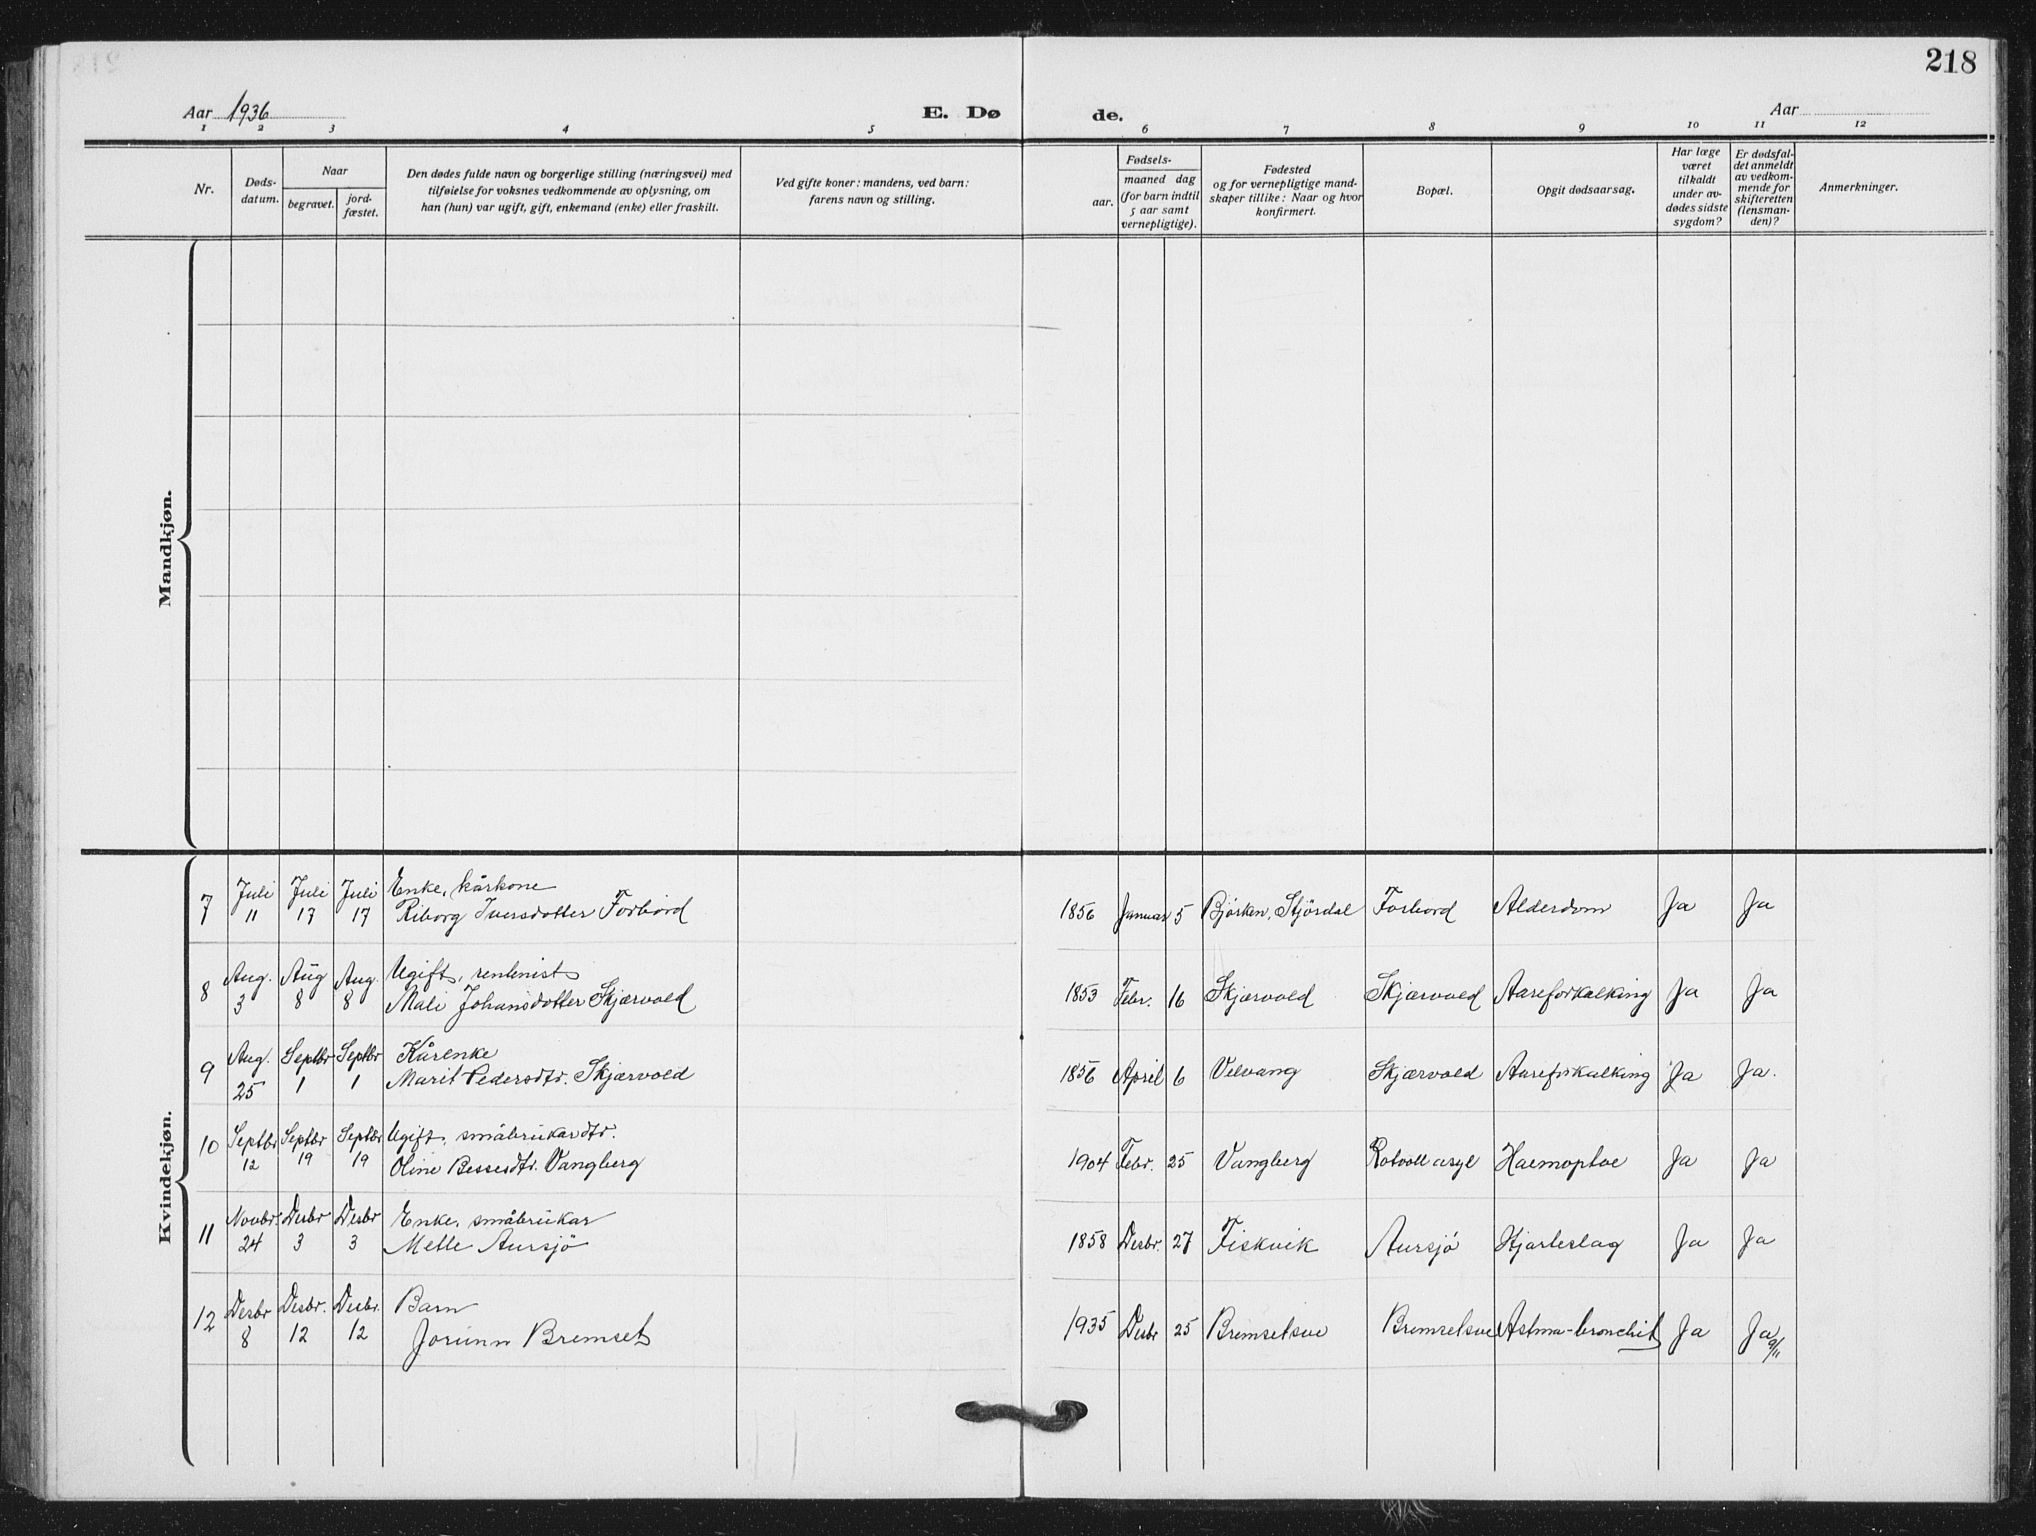 218
Aar 1936
E. Dø
de.
Aar
1 2 3 4 5 6 7 8 9 10 11 12
Nr.
Døds-
datum.
Naar
begravet.
jord-
fæstet.
Den dødes fulde navn og borgerlige stilling (næringsvei) med
tilføielse for voksnes vedkommende av oplysning, om
han (hun) var ugift, gift, enkemand (enke) eller fraskilt.
Ved gifte koner: mandens, ved barn:
farens navn og stilling.
Fødsels-
aar.
maaned dag
(for barn indtil
5 aar samt
vernepligtige).
Fødested
og for vernepligtige mand-
skaper tillike: Naar og hvor
konfirmert.
Bopæl.
Opgit dødsaarsag.
Har læge
været
tilkaldt
under av-
dødes sidste
sygdom?
Er dødsfal-
det anmeldt
av vedkom-
mende for
skifteretten
(lensman-
den)?
Anmerkninger.
Mandkjøn.
Kvindekjøn.
7 Juli 11 Juli 17 Juli 17 Enke, kårkone
Riborg Iversdotter Forbord 1856 Januar 5 Bjørken, Stjørdal Forbord Alderdom Ja Ja
8 Aug. 3 Aug 8 Aug. 8 Ugift, rentenist
Mali Johansdotter Skjærvold 1853 Febr. 16 Skjærvold Skjærvold Aareforkalking Ja Ja
9 Aug. 25 Septbr 1 Septbr 1 Kårenke
Marit Pedersdtr. Skjærvold 1856 April 6 Velvang Skjærvold Aareforkalking Ja Ja.
10 Septbr 12 Septbr 19 Septbr 19 Ugift, småbrukardtr.
Oline Bessesdtr. Vangberg 1904 Febr. 25 Vangberg Rotvoll asyl Haemoptoe Ja Ja
11 Novbr. 24 Desbr 3 Desbr 3 Enke, småbrukar
Mette Aursjö 1858 Desbr. 27 Fiskvik Aursjö Hjarteslag Ja Ja
12 Desbr 8 Desbr. 12 Desbr. 12 Barn
Jorunn Bremset 1935 Desbr 25 Bremsetsve Bremsetsve Astma-bronchit Ja Ja 9/11